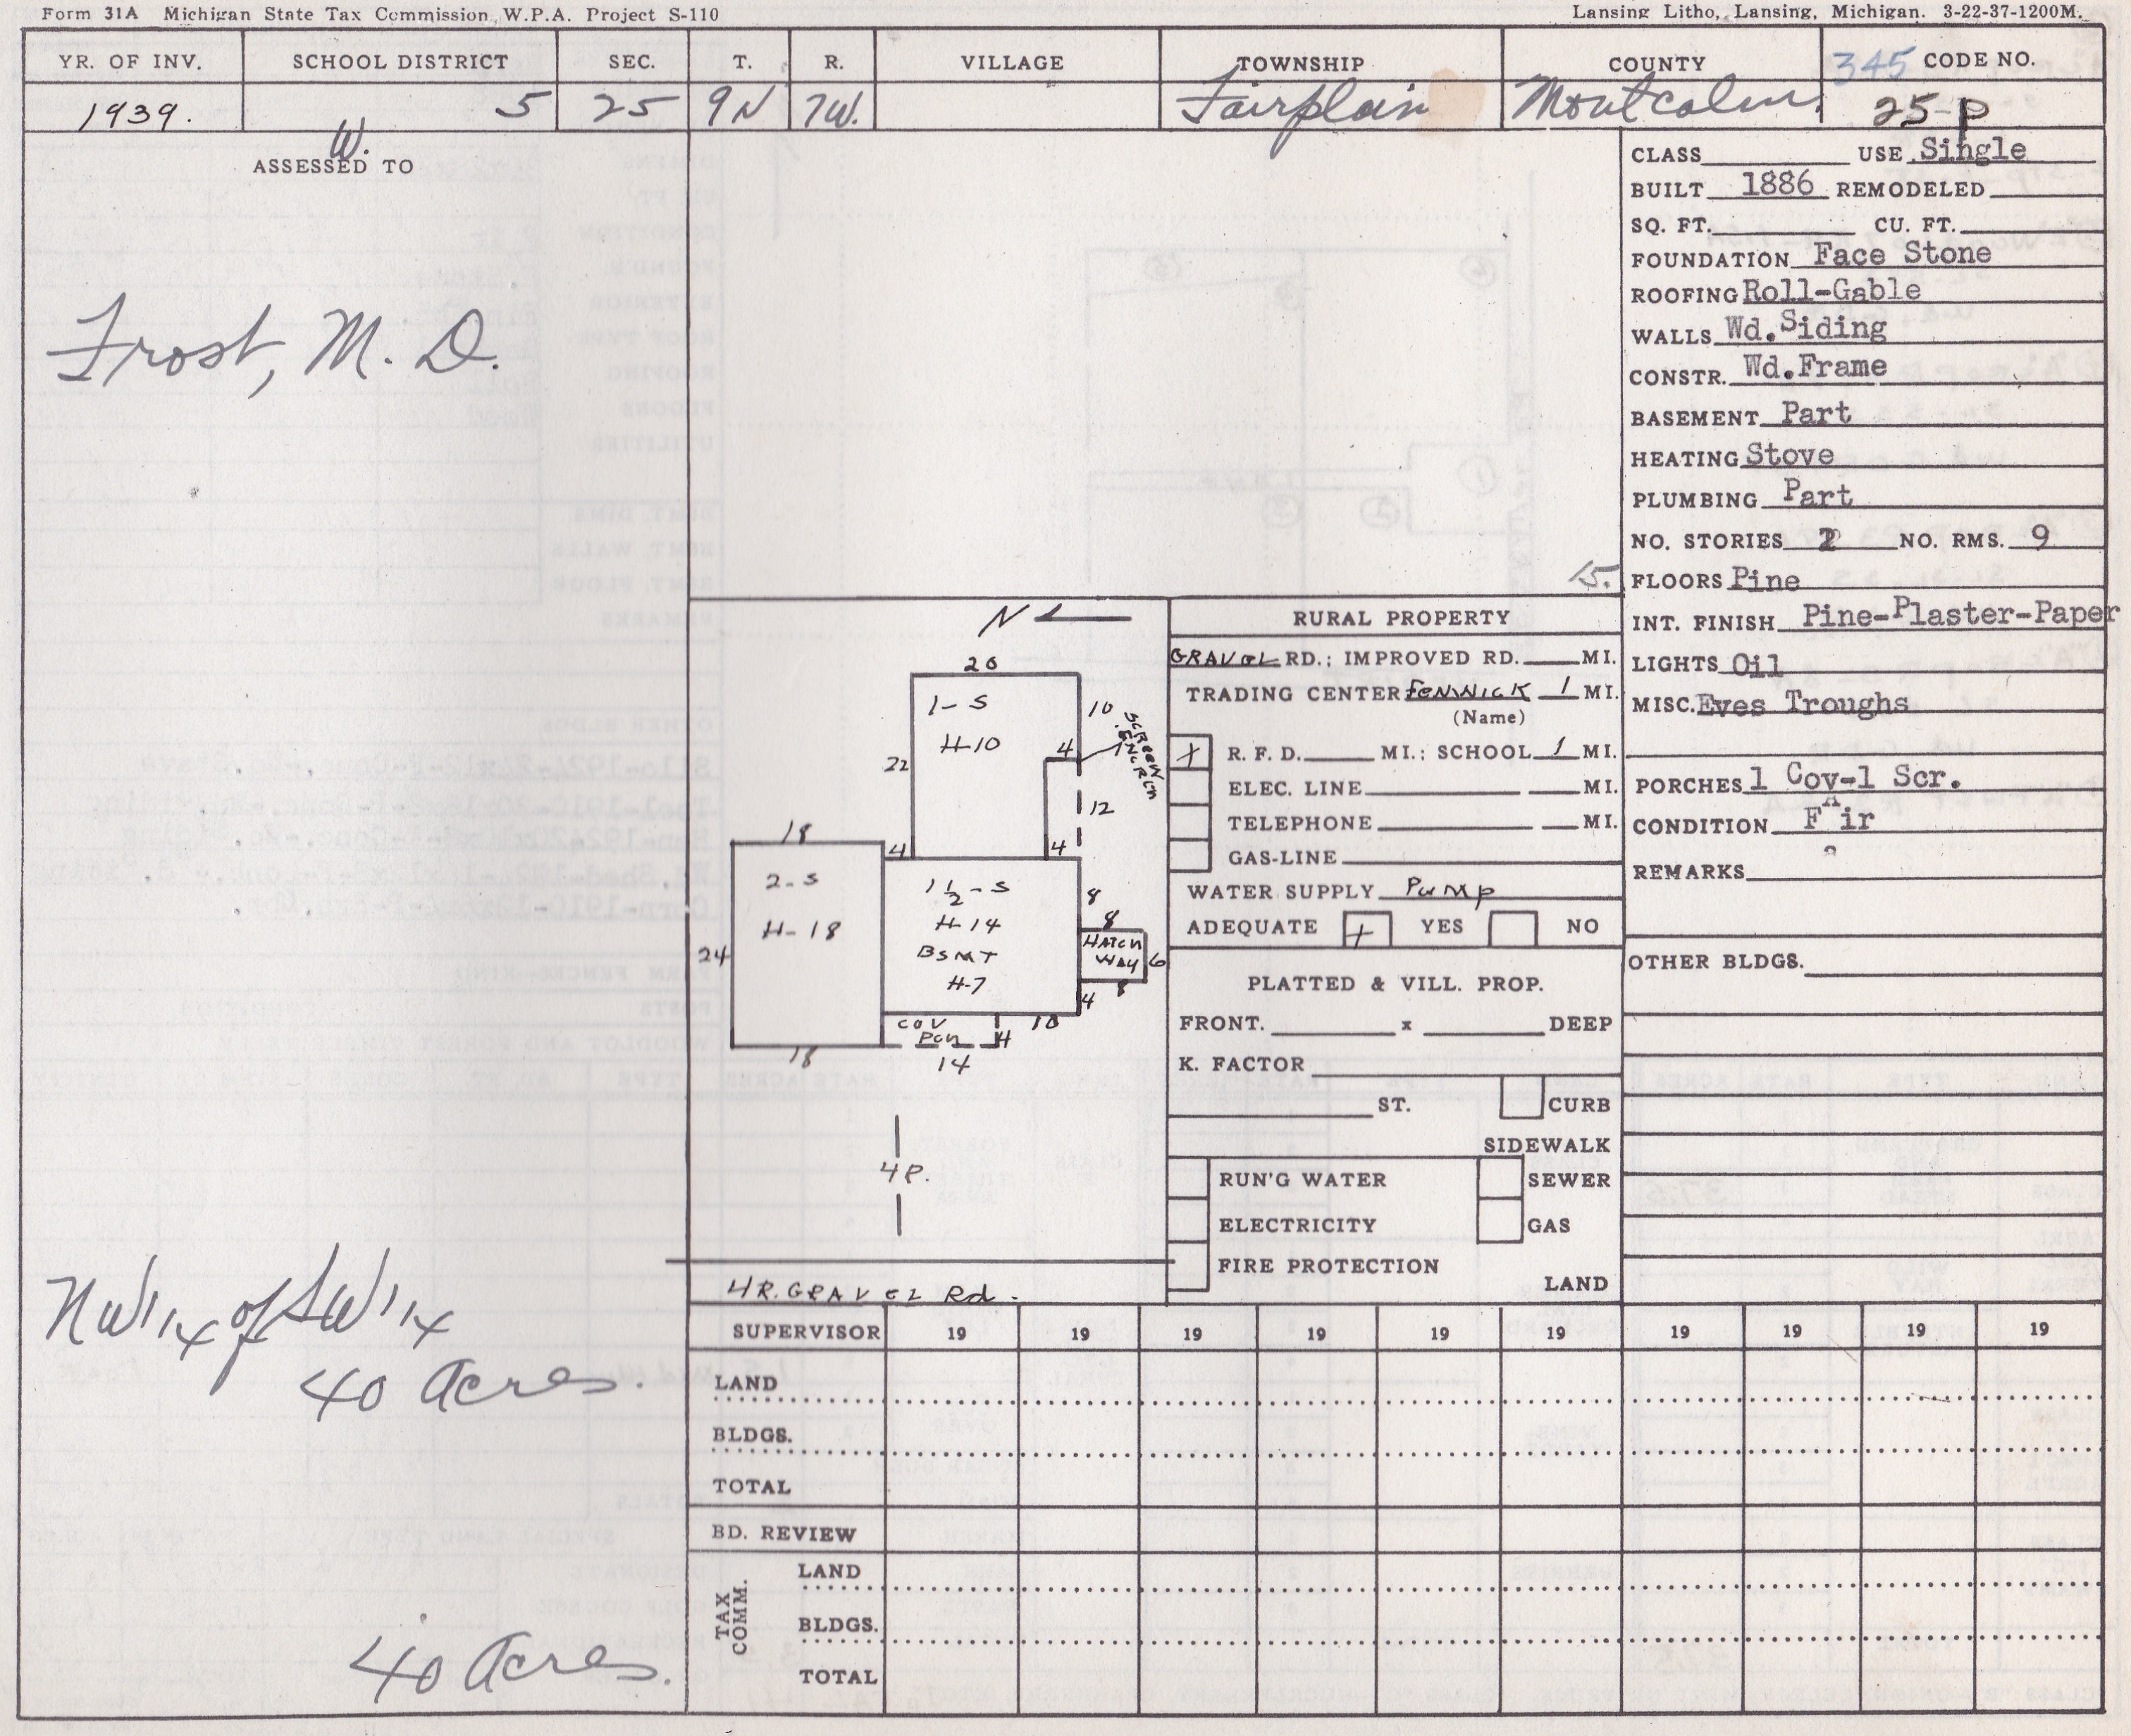 Form 31A Michigan State Tax Commission, W.P.A. Project S-110
Lansing Litho, Lansing, Michigan. 3-22-37-1200M.
YR. OF INV. SCHOOL DISTRICT SEC. T. R. VILLAGE TOWNSHIP COUNTY 345 CODE NO.
1939. 5 25 9N 7W. Fairplain Montcalm 25-P
W.
ASSESSED TO
Frost, M. D.
NW 1/4 of SW 1/4
40 Acres.
40 Acres.
CLASS USE Single
BUILT 1886 REMODELED
SQ. FT. CU. FT.
FOUNDATION Face Stone
ROOFING Roll-Gable
WALLS Wd. Siding
CONSTR. Wd. Frame
BASEMENT Part
HEATING Stove
PLUMBING Part
NO. STORIES 2 NO. RMS. 9
15.
FLOORS Pine
INT. FINISH Pine-Plaster-Paper
LIGHTS Oil
MISC. Eves Troughs
PORCHES 1 Cov-1 Scr.
CONDITION Fair
REMARKS
OTHER BLDGS.
N
20
1-S
H-10
10
SCREEN
22
4
12
4
4
18
2-S
H-18
24
18
1 1/2-S
H-14
BSMT
H-7
8
8
HATCH
WAY
6
8
4
COV
PCH
4
10
14
4R.
4R. GRAVEL Rd.
RURAL PROPERTY
GRAVEL RD.; IMPROVED RD. MI.
TRADING CENTER FENWICK 1 MI.
(Name)
+ R. F. D. MI.: SCHOOL 1 MI.
ELEC. LINE MI.
TELEPHONE MI.
GAS-LINE
WATER SUPPLY Pump
ADEQUATE + YES NO
PLATTED & VILL. PROP.
FRONT. x DEEP
K. FACTOR
ST. CURB
SIDEWALK
RUN'G WATER SEWER
ELECTRICITY GAS
FIRE PROTECTION
LAND
SUPERVISOR 19 19 19 19 19 19 19 19 19 19
LAND
BLDGS.
TOTAL
BD. REVIEW
TAX COMM.
LAND
BLDGS.
TOTAL